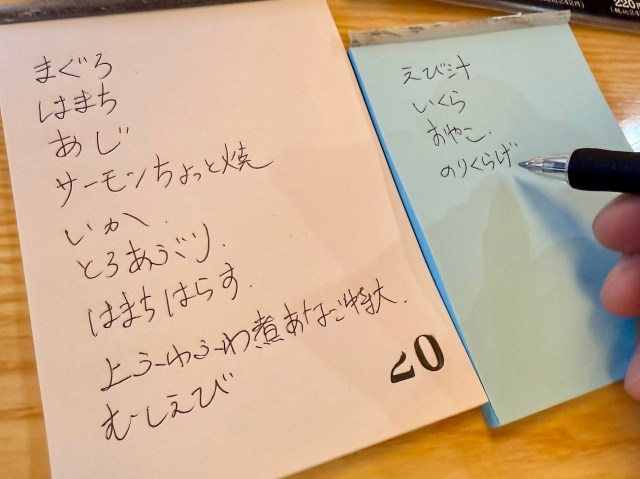 まぐろ
はまち
あじ
サーモンちょっと焼
いか
とろあぶり.
はまちはらす.
上ふわふわ煮あなご特大.
むしえび
20
えび汁
いくら
おやこ.
のりくらげ
220円